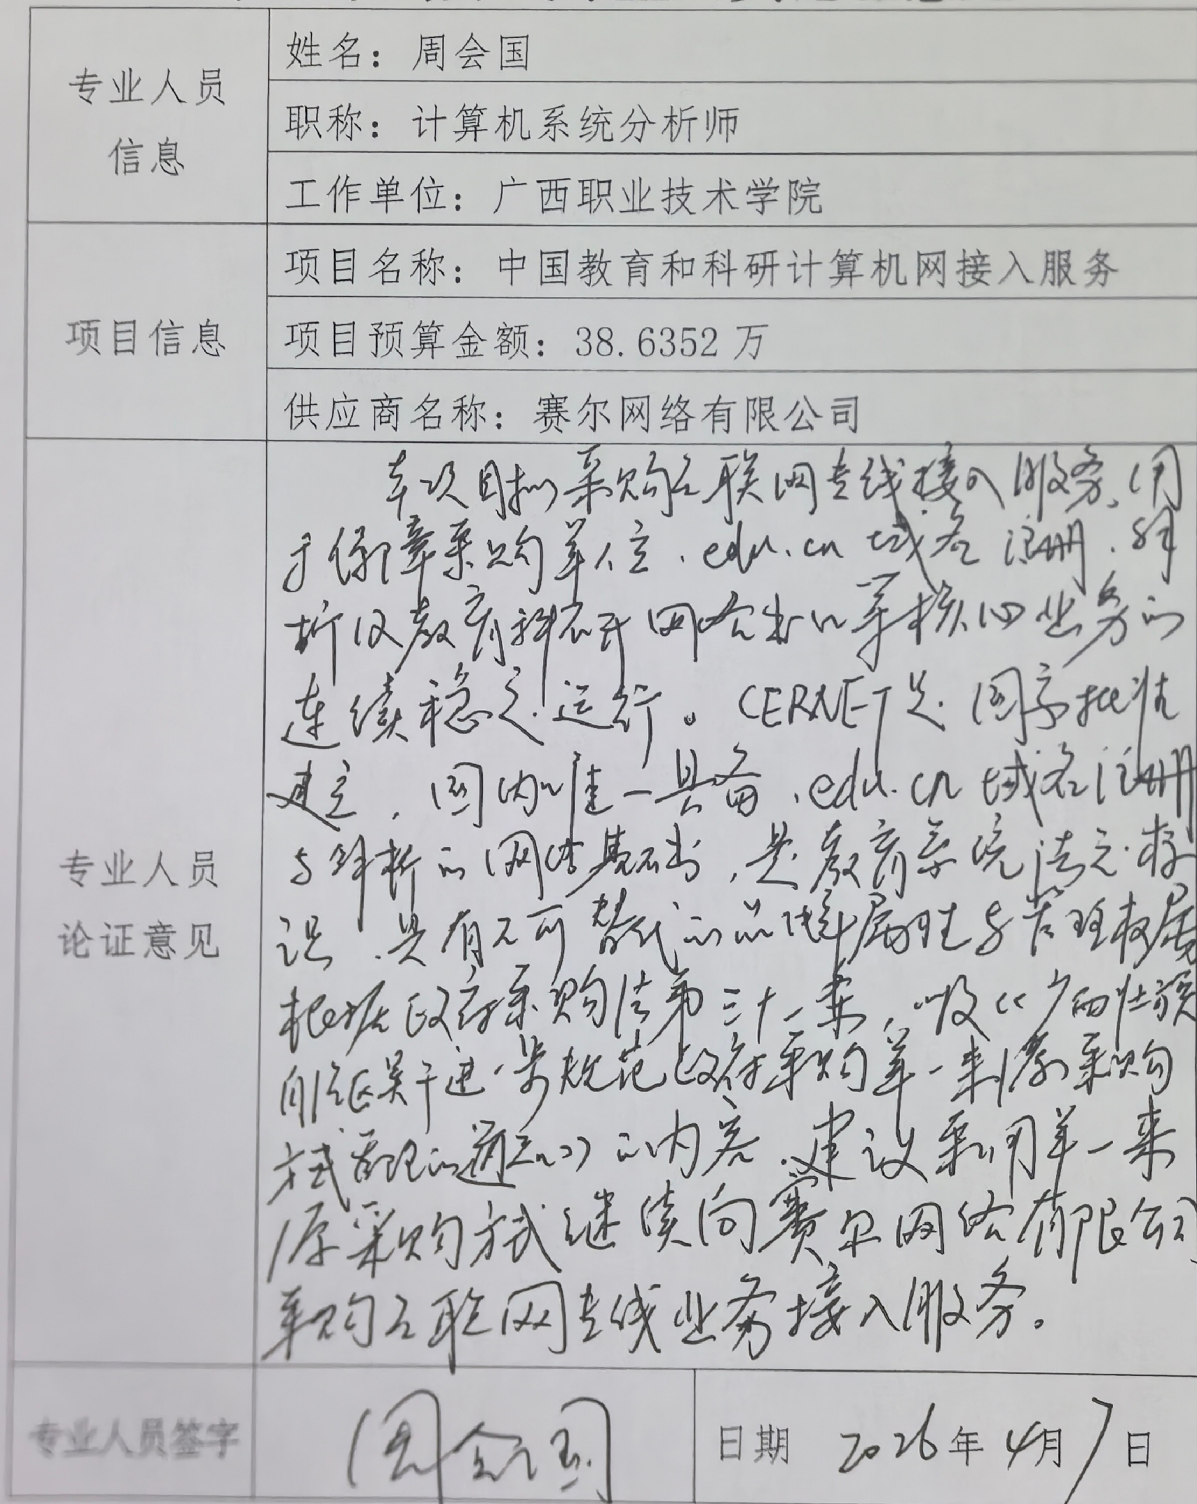 专业人员
信息
姓名：周会国
职称：计算机系统分析师
工作单位：广西职业技术学院
项目信息
项目名称：中国教育和科研计算机网接入服务
项目预算金额：38.6352 万
供应商名称：赛尔网络有限公司
专业人员
论证意见
本次项目拟采购互联网专线接入服务，用
于保障采购单位.edu.cn 域名注册、解
析及教育科研网络出口等核心业务的
连续稳定运行。CERNET是国家批准
建立，国内唯一具备.edu.cn 域名注册
与解析的网络基础，是教育系统法定标
识，具有不可替代的品牌属性与管理权属
根据政府采购法第三十一条，以及《广西壮族
自治区关于进一步规范政府采购单一来源采购
方式管理的通知》的内容，建议采用单一来
源采购方式继续向赛尔网络有限公司
采购互联网专线业务接入服务。
专业人员签字
周会国
日期 2026年4月7日